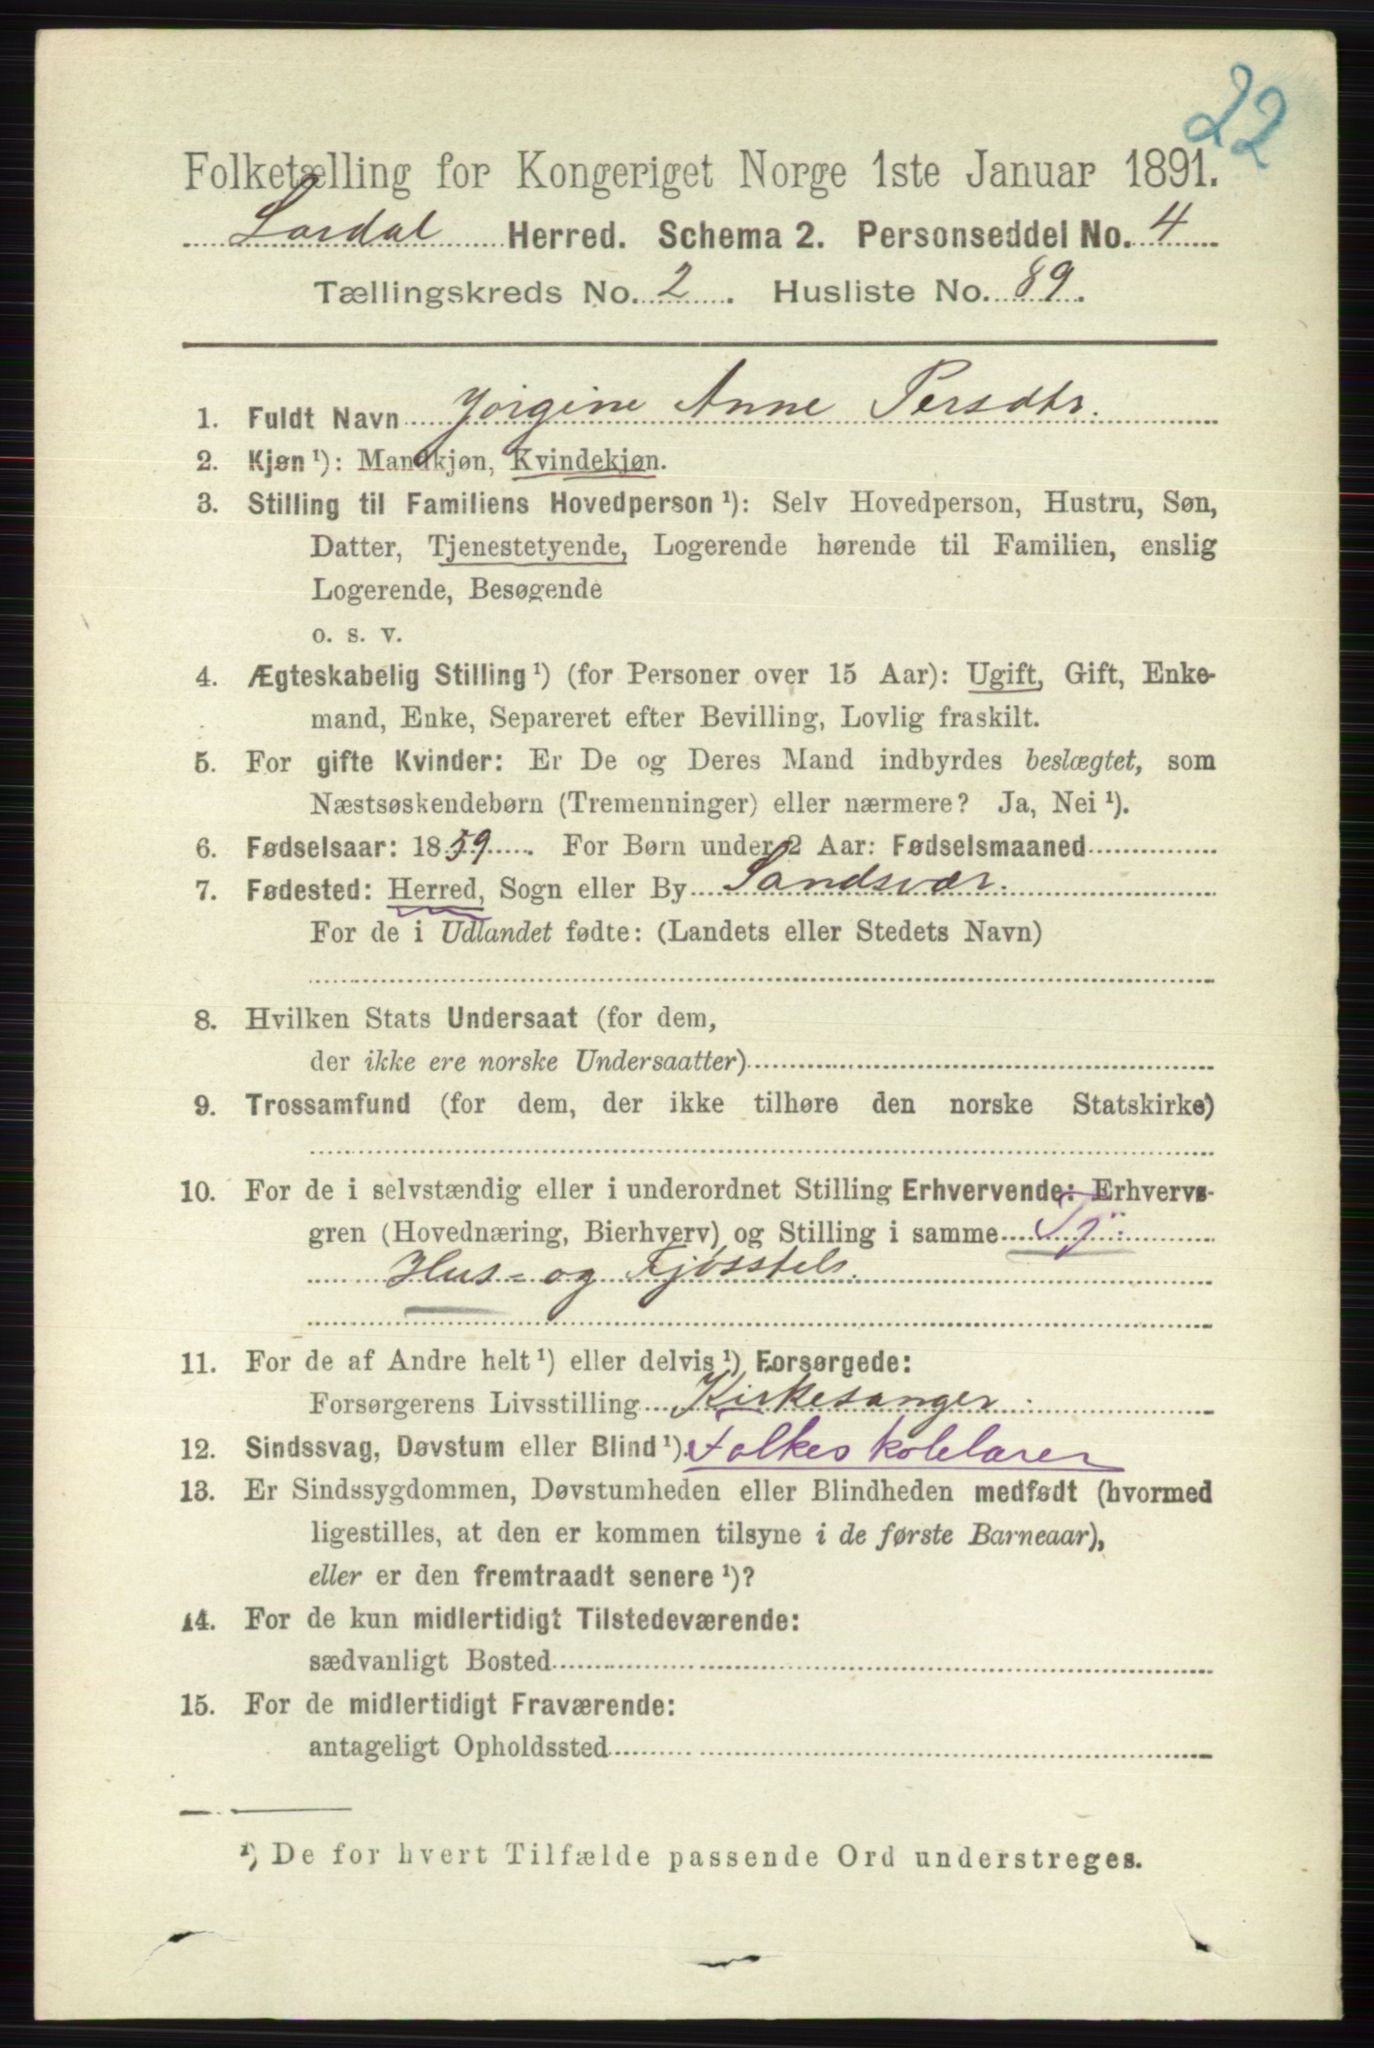 22
Folketælling for Kongeriget Norge 1ste Januar 1891.
Lardal Herred. Schema 2. Personseddel No. 4
Tællingskreds No. 2. Husliste No. 89.
1. Fuldt Navn Jørgine Anne Persdtr.
2. Kjøn ¹): Mandkjøn, Kvindekjøn.
3. Stilling til Familiens Hovedperson ¹): Selv Hovedperson, Hustru, Søn,
Datter, Tjenestetyende, Logerende hørende til Familien, enslig
Logerende, Besøgende
o. s. v.
4. Ægteskabelig Stilling ¹) (for Personer over 15 Aar): Ugift, Gift, Enke-
mand, Enke, Separeret efter Bevilling, Lovlig fraskilt.
5. For gifte Kvinder: Er De og Deres Mand indbyrdes beslægtet, som
Næstsøskendebørn (Tremenninger) eller nærmere? Ja, Nei ¹).
6. Fødselsaar: 1859. For Børn under 2 Aar: Fødselsmaaned
7. Fødested: Herred, Sogn eller By Sandsvær.
For de i Udlandet fødte: (Landets eller Stedets Navn)
8. Hvilken Stats Undersaat (for dem,
der ikke ere norske Undersaatter)
9. Trossamfund (for dem, der ikke tilhøre den norske Statskirke)
10. For de i selvstændig eller i underordnet Stilling Erhvervende: Erhvervs-
gren (Hovednæring, Bierhverv) og Stilling i samme Tj:
Hus- og Fjøsstel.
11. For de af Andre helt ¹) eller delvis ¹) Forsørgede:
Forsørgerens Livsstilling Kirkesanger.
12. Sindssvag, Døvstum eller Blind ¹). Folkeskolelærer
13. Er Sindssygdommen, Døvstumheden eller Blindheden medfødt (hvormed
ligestilles, at den er kommen tilsyne i de første Barneaar),
eller er den fremtraadt senere ¹)?
14. For de kun midlertidigt Tilstedeværende:
sædvanligt Bosted
15. For de midlertidigt Fraværende:
antageligt Opholdssted
¹) De for hvert Tilfælde passende Ord understreges.